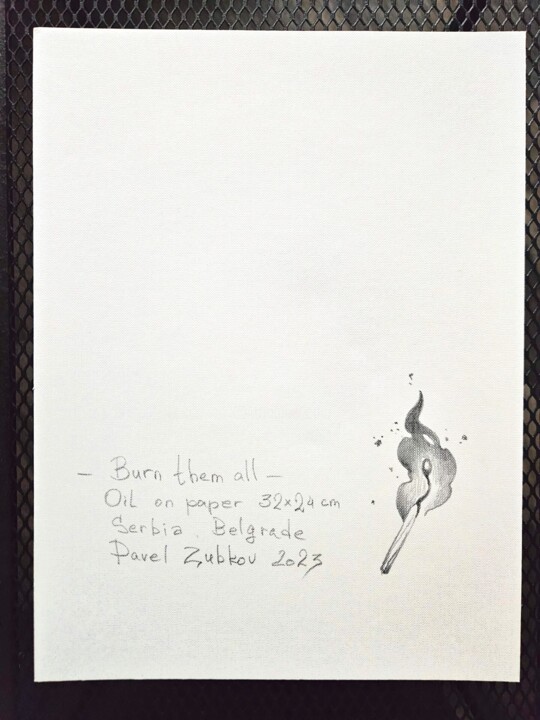 – Burn them all –
Oil on paper 32×24 cm
Serbia. Belgrade
Pavel Zubkov 2023